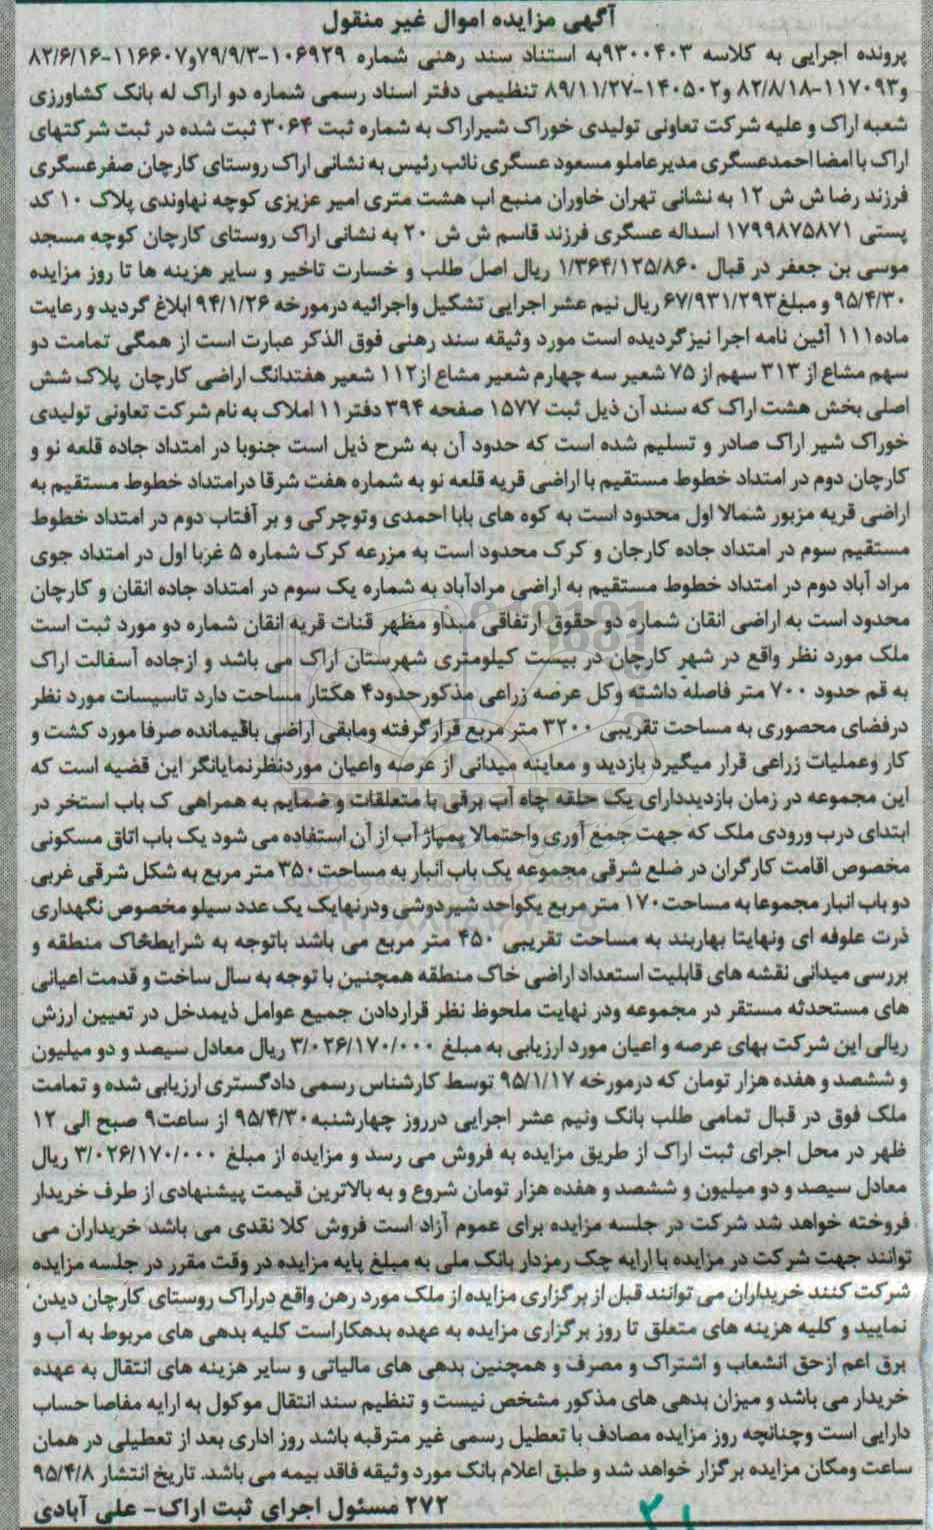 آگهی مزایده اموال غیر منقول
پرونده اجرایی به کلاسه ۹۳۰۰۴۰۳به استناد سند رهنی شماره ۱۰۶۹۲۹-۷۹/۹/۳و۱۱۶۶۰۷-۸۲/۶/۱۶
و۱۱۷۰۹۳-۸۲/۸/۱۸ و۱۴۰۵۰۲-۸۹/۱۱/۲۷ تنظیمی دفتر اسناد رسمی شماره دو اراک له بانک کشاورزی
شعبه اراک و علیه شرکت تعاونی تولیدی خوراک شیراراک به شماره ثبت ۳۰۶۴ ثبت شده در ثبت شرکتهای
اراک با امضا احمدعسگری مدیرعاملو مسعود عسگری نائب رئیس به نشانی اراک روستای کارچان صفرعسگری
فرزند رضا ش ش ۱۲ به نشانی تهران خاوران منبع اب هشت متری امیر عزیزی کوچه نهاوندی پلاک ۱۰ کد
پستی ۱۷۹۹۸۷۵۸۷۱ اسداله عسگری فرزند قاسم ش ش ۲۰ به نشانی اراک روستای کارچان کوچه مسجد
موسی بن جعفر در قبال ۱/۳۶۴/۱۲۵/۸۶۰ ریال اصل طلب و خسارت تاخیر و سایر هزینه ها تا روز مزایده
۹۵/۴/۳۰ و مبلغ۶۷/۹۳۱/۲۹۳ ریال نیم عشر اجرایی تشکیل واجرائیه درمورخه ۹۴/۱/۲۶ ابلاغ گردید و رعایت
ماده۱۱۱ آئین نامه اجرا نیزگردیده است مورد وثیقه سند رهنی فوق الذکر عبارت است از همگی تمامت دو
سهم مشاع از ۳۱۳ سهم از ۷۵ شعیر سه چهارم شعیر مشاع از۱۱۲ شعیر هفتدانگ اراضی کارچان پلاک شش
اصلی بخش هشت اراک که سند آن ذیل ثبت ۱۵۷۷ صفحه ۳۹۴ دفتر۱۱ املاک به نام شرکت تعاونی تولیدی
خوراک شیر اراک صادر و تسلیم شده است که حدود آن به شرح ذیل است جنوبا در امتداد جاده قلعه نو و
کارچان دوم در امتداد خطوط مستقیم با اراضی قریه قلعه نو به شماره هفت شرقا درامتداد خطوط مستقیم به
اراضی قریه مزبور شمالا اول محدود است به کوه های بابا احمدی وتوچرکی و بر آفتاب دوم در امتداد خطوط
مستقیم سوم در امتداد جاده کارجان و کرک محدود است به مزرعه کرک شماره ۵ غربا اول در امتداد جوی
مراد آباد دوم در امتداد خطوط مستقیم به اراضی مرادآباد به شماره یک سوم در امتداد جاده انقان و کارچان
محدود است به اراضی انقان شماره دو حقوق ارتفاقی مبداو مظهر قنات قریه انقان شماره دو مورد ثبت است
ملک مورد نظر واقع در شهر کارچان در بیست کیلومتری شهرستان اراک می باشد و ازجاده آسفالت اراک
به قم حدود ۷۰۰ متر فاصله داشته وکل عرصه زراعی مذکورحدود۴ هکتار مساحت دارد تاسیسات مورد نظر
درفضای محصوری به مساحت تقریبی ۳۲۰۰ متر مربع قرارگرفته ومابقی اراضی باقیمانده صرفا مورد کشت و
کار وعملیات زراعی قرار میگیرد بازدید و معاینه میدانی از عرصه واعیان موردنظرنمایانگر این قضیه است که
این مجموعه در زمان بازدیددارای یک حلقه چاه آب برقی با متعلقات و ضمایم به همراهی ک باب استخر در
ابتدای درب ورودی ملک که جهت جمع آوری واحتمالا پمپاژ آب از آن استفاده می شود یک باب اتاق مسکونی
مخصوص اقامت کارگران در ضلع شرقی مجموعه یک باب انبار به مساحت۳۵۰ متر مربع به شکل شرقی غربی
دو باب انبار مجموعا به مساحت۱۷۰ متر مربع یکواحد شیردوشی ودرنهایک یک عدد سیلو مخصوص نگهداری
ذرت علوفه ای ونهایتا بهاربند به مساحت تقریبی ۴۵۰ متر مربع می باشد باتوجه به شرایطخاک منطقه و
بررسی میدانی نقشه های قابلیت استعداد اراضی خاک منطقه همچنین با توجه به سال ساخت و قدمت اعیانی
های مستحدثه مستقر در مجموعه ودر نهایت ملحوظ نظر قراردادن جمیع عوامل ذیمدخل در تعیین ارزش
ریالی این شرکت بهای عرصه و اعیان مورد ارزیابی به مبلغ ۳/۰۲۶/۱۷۰/۰۰۰ ریال معادل سیصد و دو میلیون
و ششصد و هفده هزار تومان که درمورخه ۹۵/۱/۱۷ توسط کارشناس رسمی دادگستری ارزیابی شده و تمامت
ملک فوق در قبال تمامی طلب بانک ونیم عشر اجرایی درروز چهارشنبه۹۵/۴/۳۰ از ساعت۹ صبح الی ۱۲
ظهر در محل اجرای ثبت اراک از طریق مزایده به فروش می رسد و مزایده از مبلغ ۳/۰۲۶/۱۷۰/۰۰۰ ریال
معادل سیصد و دو میلیون و ششصد و هفده هزار تومان شروع و به بالاترین قیمت پیشنهادی از طرف خریدار
فروخته خواهد شد شرکت در جلسه مزایده برای عموم آزاد است فروش کلا نقدی می باشد خریداران می
توانند جهت شرکت در مزایده با ارایه چک رمزدار بانک ملی به مبلغ پایه مزایده در وقت مقرر در جلسه مزایده
شرکت کنند خریداران می توانند قبل از برگزاری مزایده از ملک مورد رهن واقع دراراک روستای کارچان دیدن
نمایید و کلیه هزینه های متعلق تا روز برگزاری مزایده به عهده بدهکاراست کلیه بدهی های مربوط به آب و
برق اعم ازحق انشعاب و اشتراک و مصرف و همچنین بدهی های مالیاتی و سایر هزینه های انتقال به عهده
خریدار می باشد و میزان بدهی های مذکور مشخص نیست و تنظیم سند انتقال موکول به ارایه مفاصا حساب
دارایی است وچنانچه روز مزایده مصادف با تعطیل رسمی غیر مترقبه باشد روز اداری بعد از تعطیلی در همان
ساعت ومکان مزایده برگزار خواهد شد و طبق اعلام بانک مورد وثیقه فاقد بیمه می باشد. تاریخ انتشار ۹۵/۴/۸
۲۷۲ مسئول اجرای ثبت اراک- علی آبادی